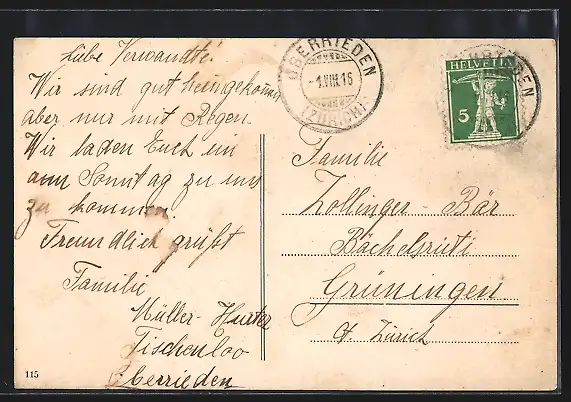 Liebe Verwandte!
Wir sind gut heimgekommen
aber nur mit Regen.
Wir laden Euch ein
am Sonntag zu uns
zu kommen.
Freundlich grüßt
Familie
Müller-Hurter
Tischenloo
Oberrieden
115
OBERRIEDEN
-1.VIII.16
(ZÜRICH)
HELVETIA
5
Familie
Zollinger-Bär
Bächelsrüti
Grüningen
Kt. Zürich